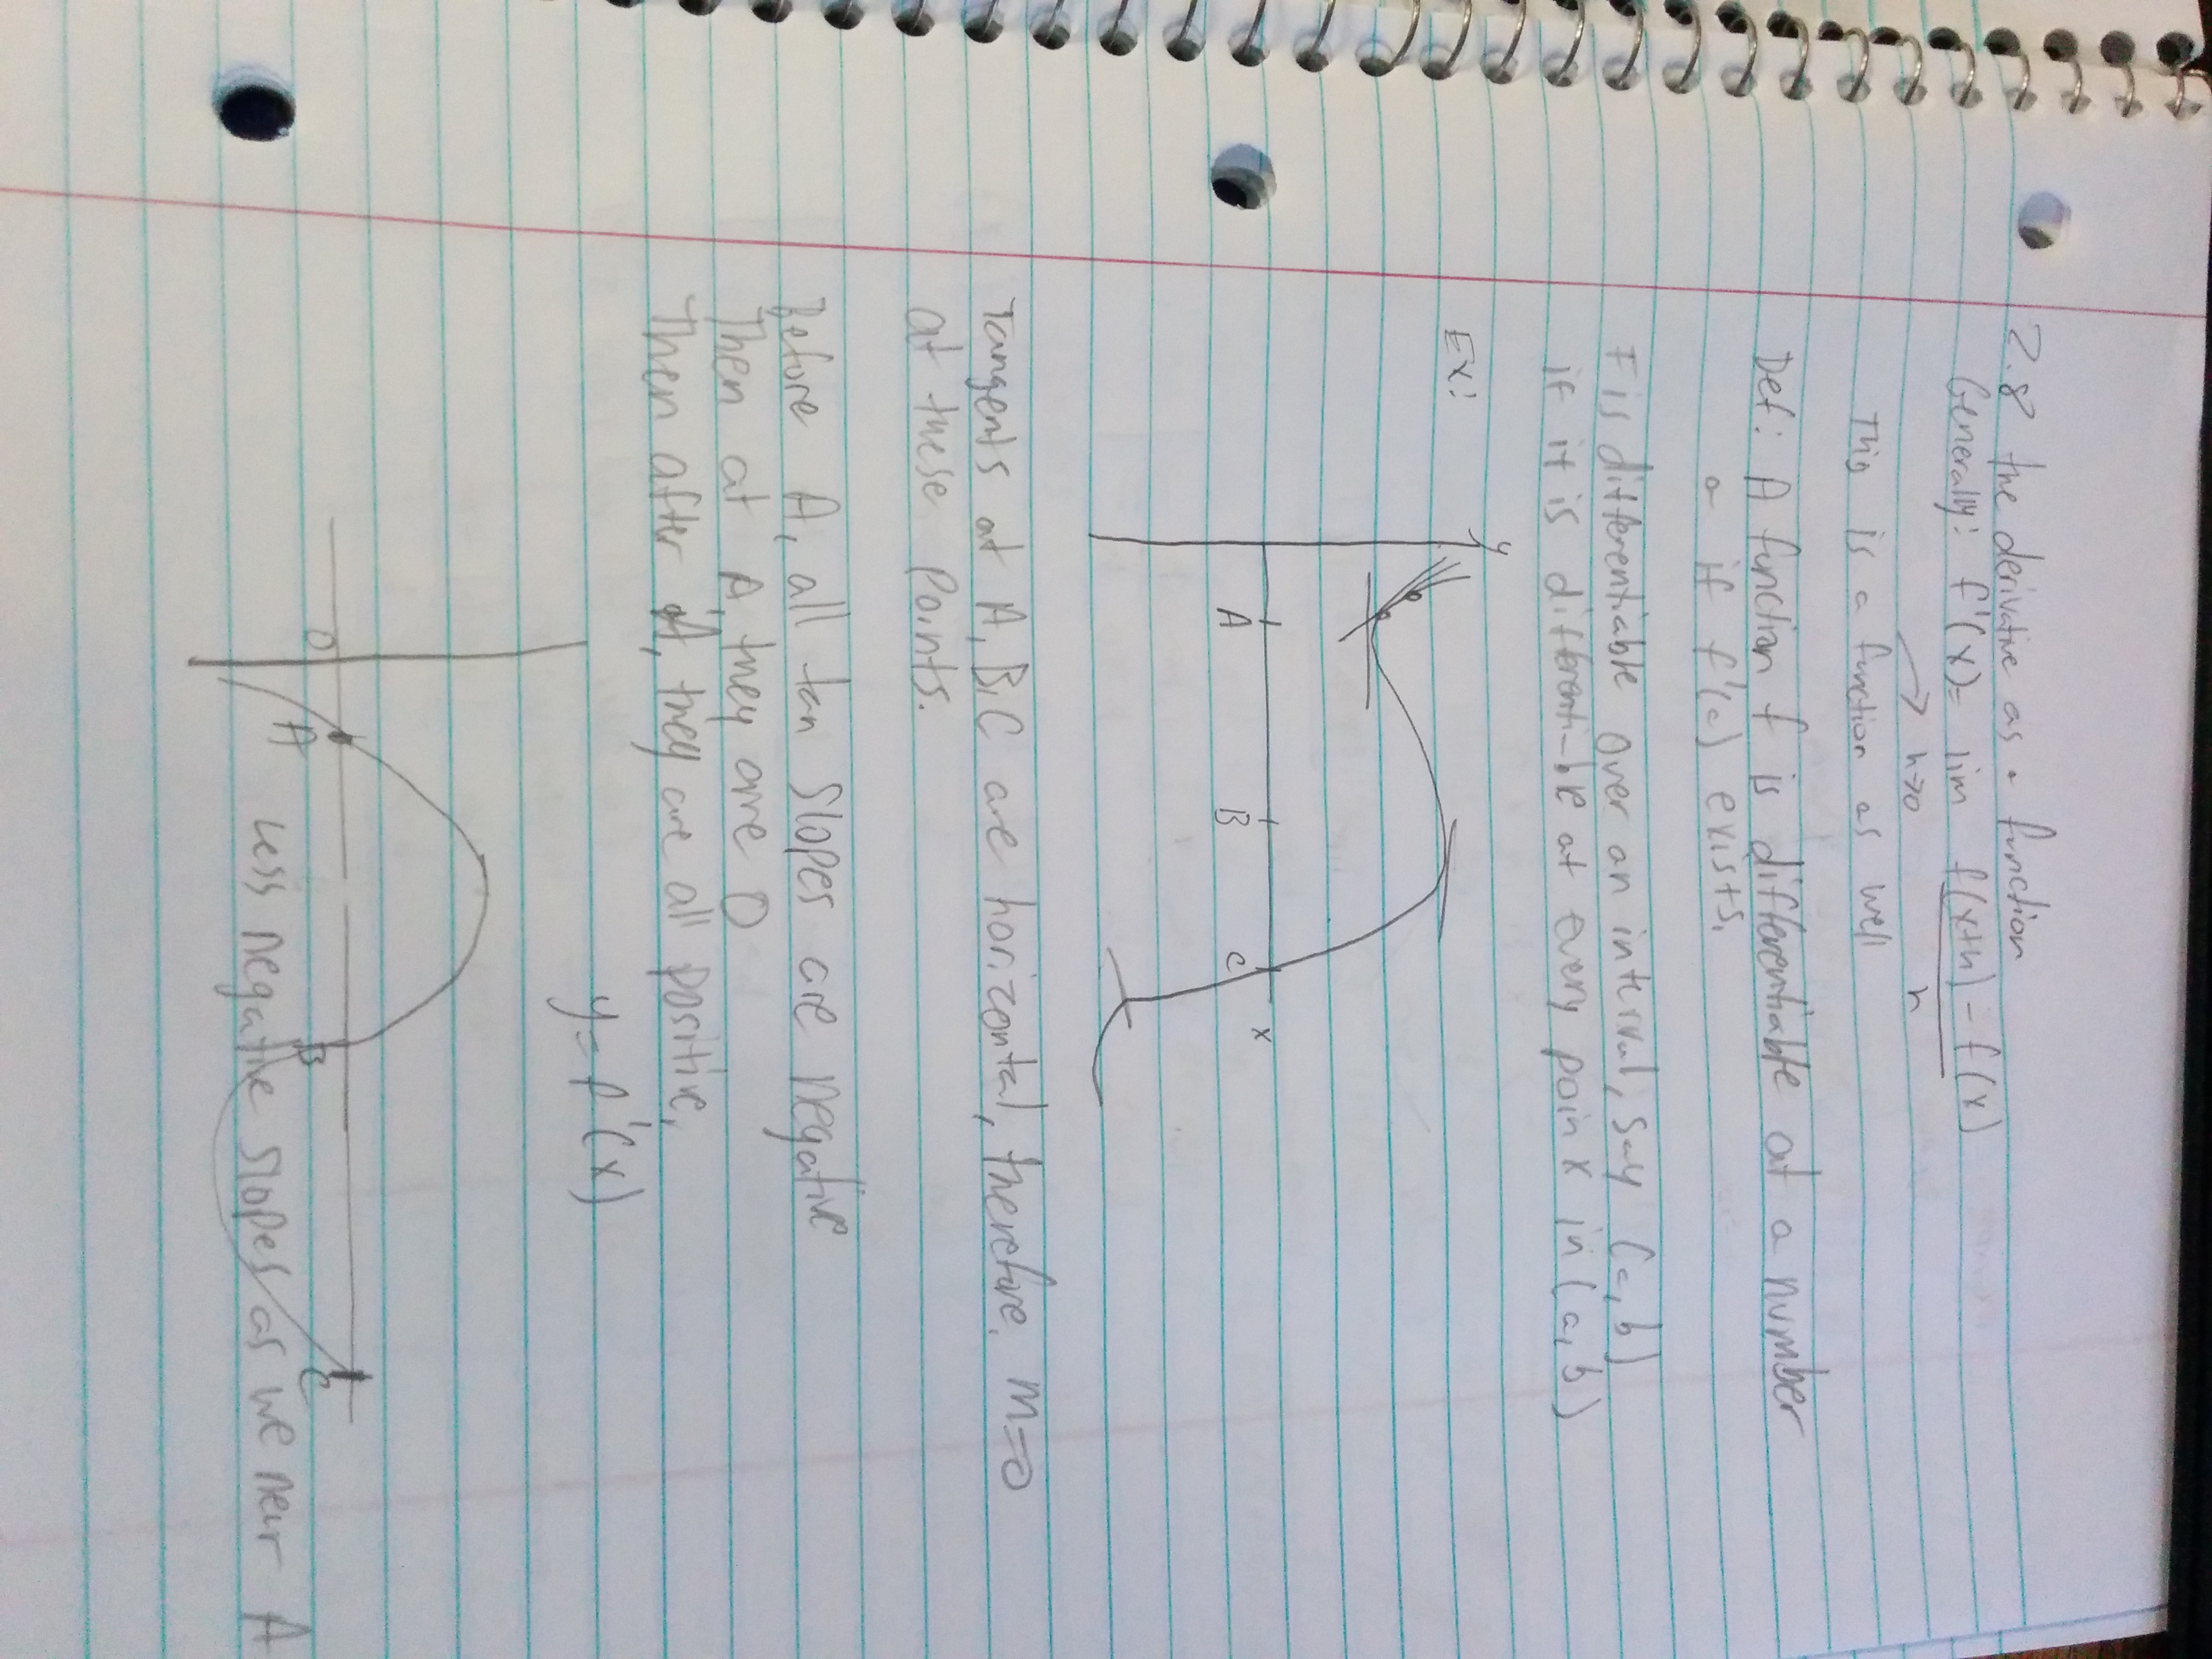 2.8 the derivative as a function
Generally: f'(x) = lim f(x+h) - f(x)
h→0 h
This is a function as well
Def: A function f is differentiable at a number
a if f'(a) exists.
F is differentiable over an interval, say (a,b)
if it is differenti-ble at every poin x in (a,b)
Ex:
y
A B C x
Tangents at A, B, C are horizontal, therefore, m=0
at these points.
Before A, all tan slopes are negative
Then at A, they are 0
Then after A, they are all positive,
y = f'(x)
0 A B C
Less negative slopes as we near A